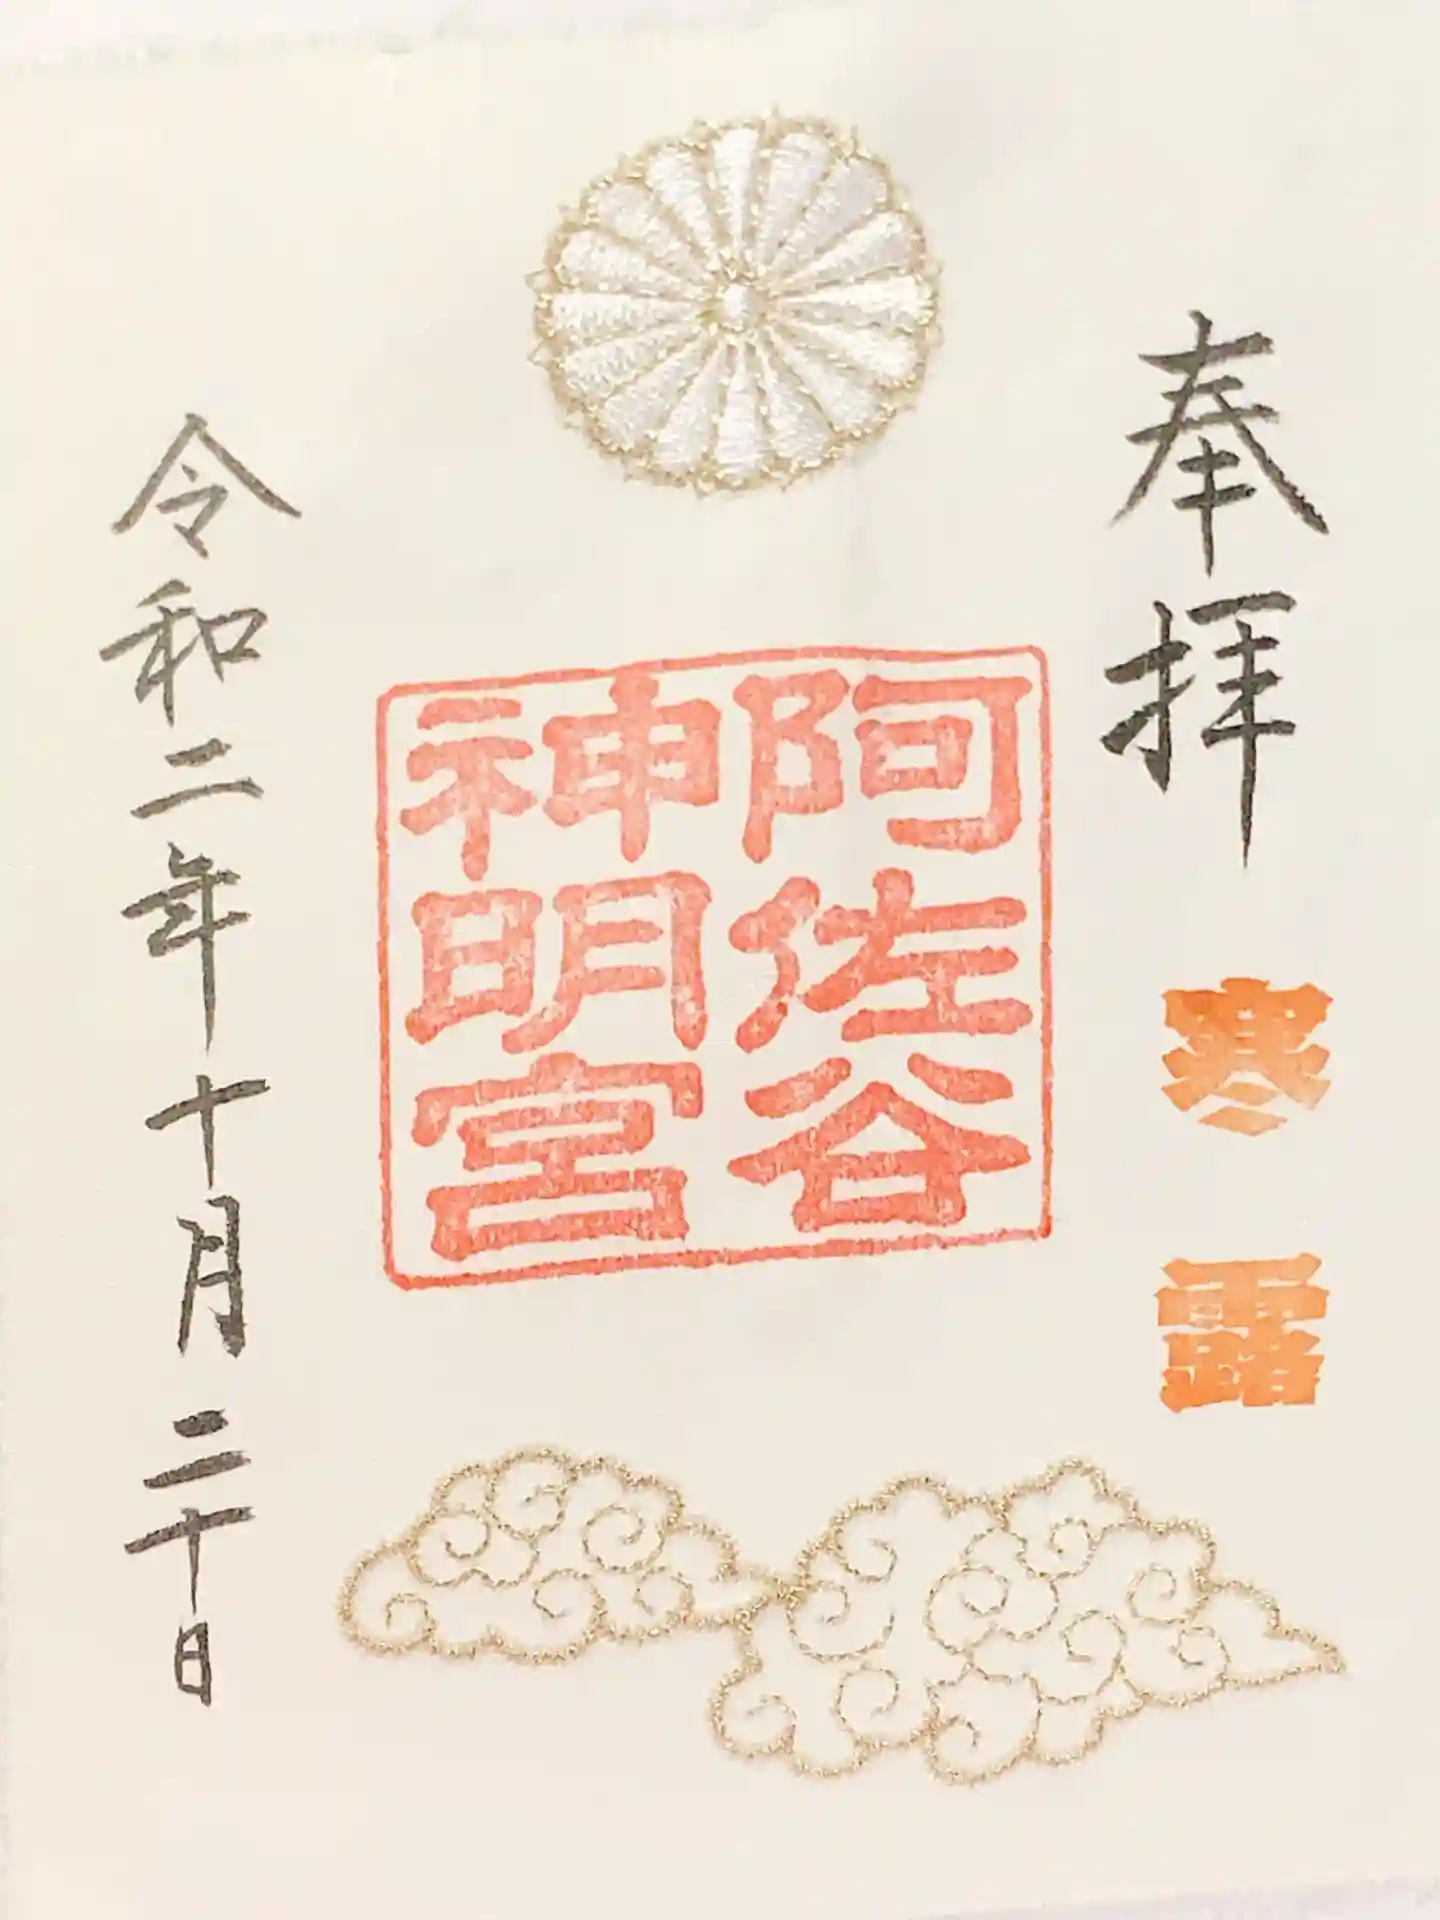 奉拝
寒露
阿佐谷
神明宮
令和二年十月二十日